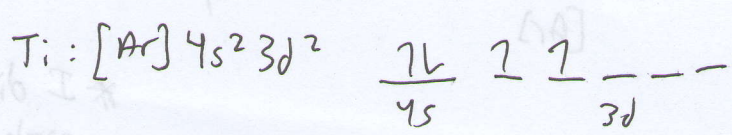 Ti: [Ar] 4s² 3d² ↿⇂ ↿ ↿ _ _ _
4s 3d